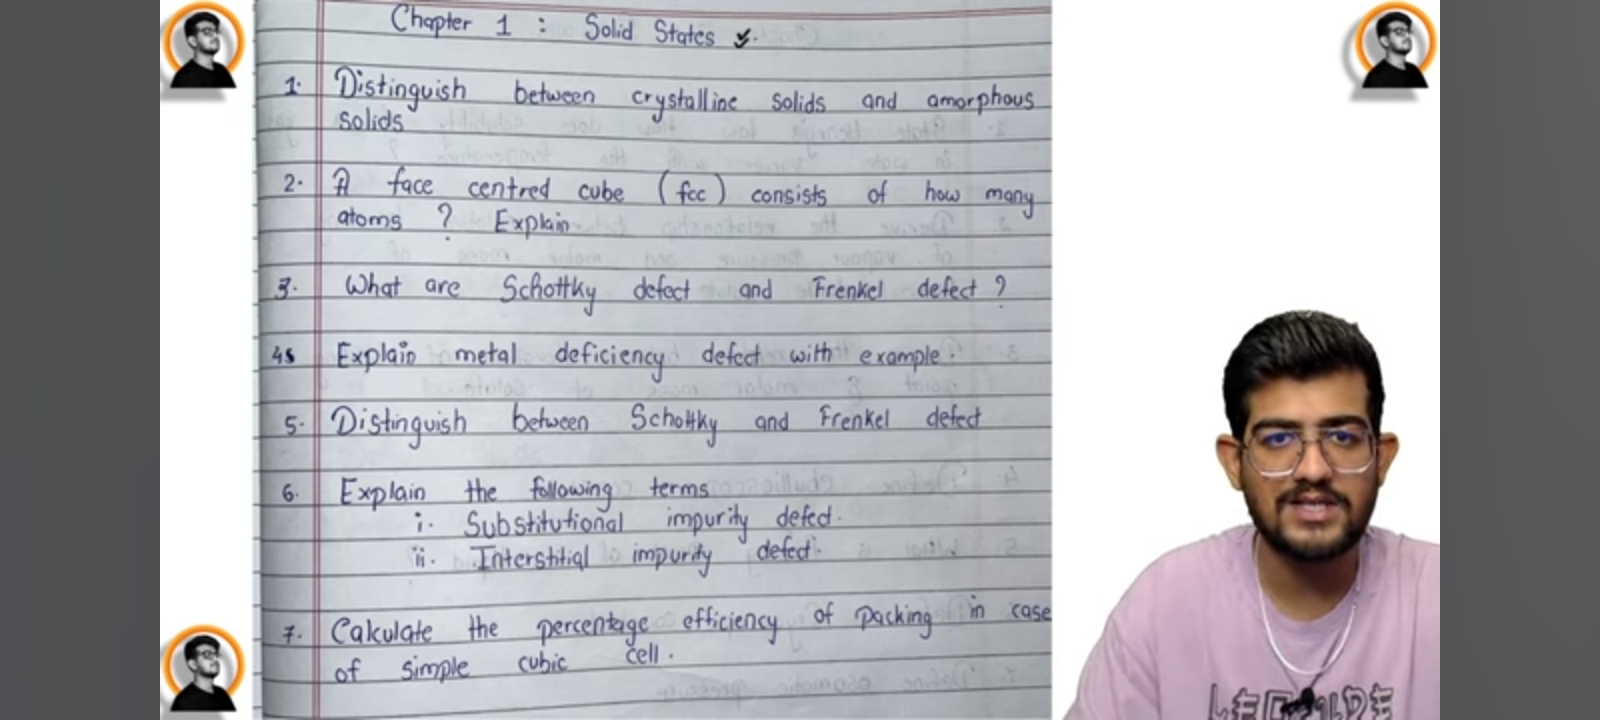 Chapter 1 : Solid States
1. Distinguish between crystalline solids and amorphous
solids
2. A face centred cube (fcc) consists of how many
atoms ? Explain
3. What are Schottky defect and Frenkel defect ?
4. Explain metal deficiency defect with example.
5. Distinguish between Schottky and Frenkel defect
6. Explain the following terms
i. Substitutional impurity defect.
ii. Interstitial impurity defect.
7. Calculate the percentage efficiency of packing in case
of simple cubic cell.